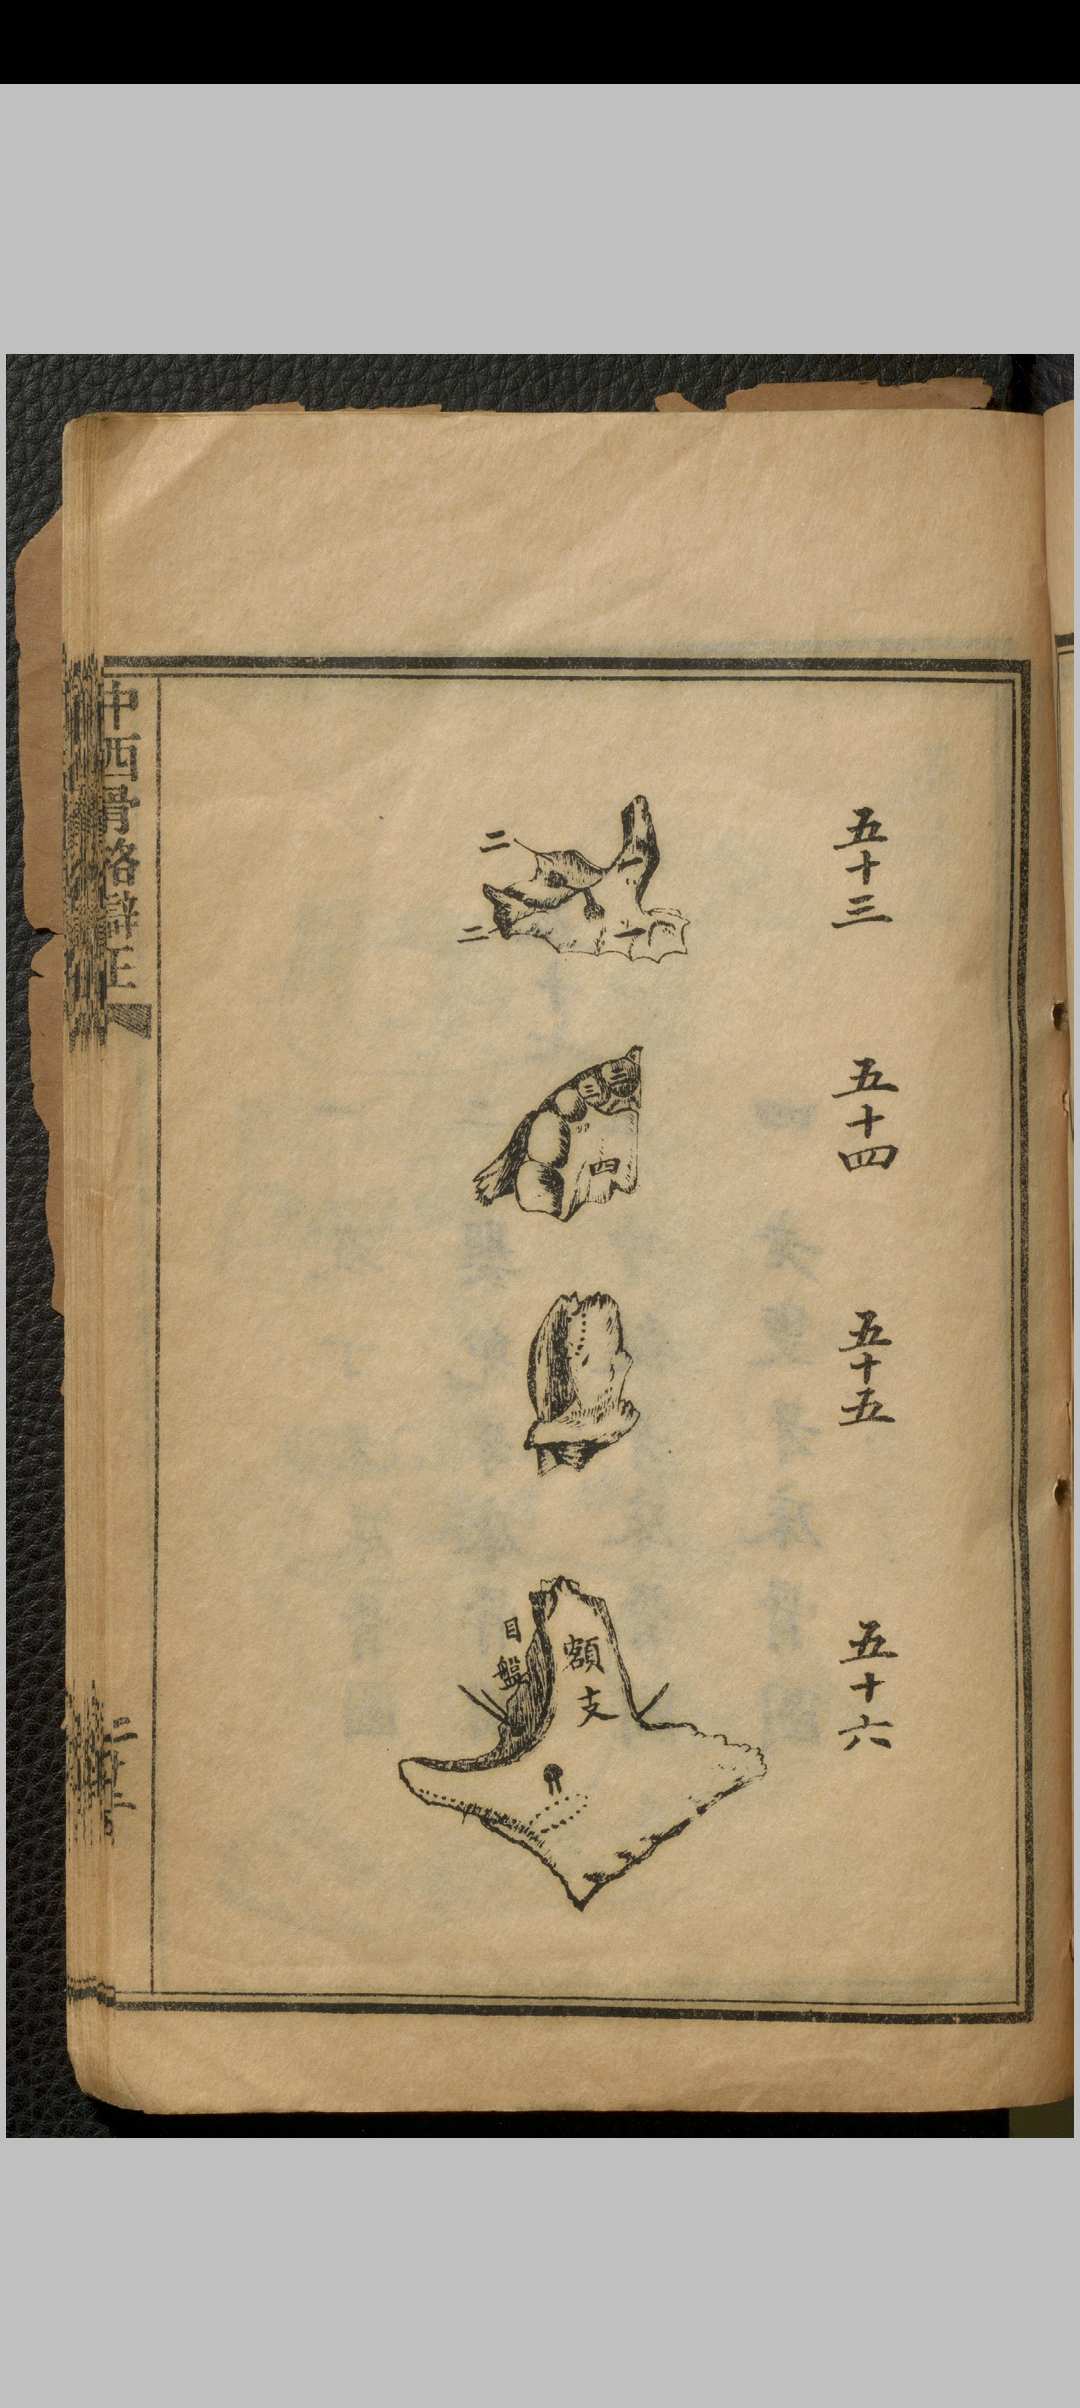 五十三
二
一
二
一
五十四
二
三
四
五十五
五十六
目盤
額支
中西骨格辯正